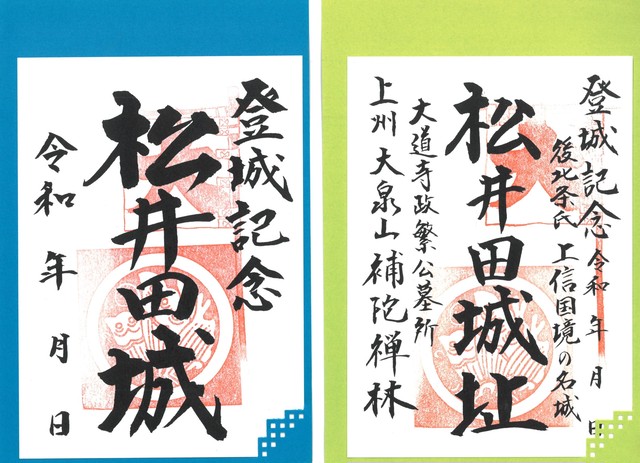 登城記念
松井田城
令和 年 月 日
登城記念 令和 年 月 日
後北条氏 上信国境の名城
松井田城址
大道寺政繁公墓所
上州 大泉山補陀禅林